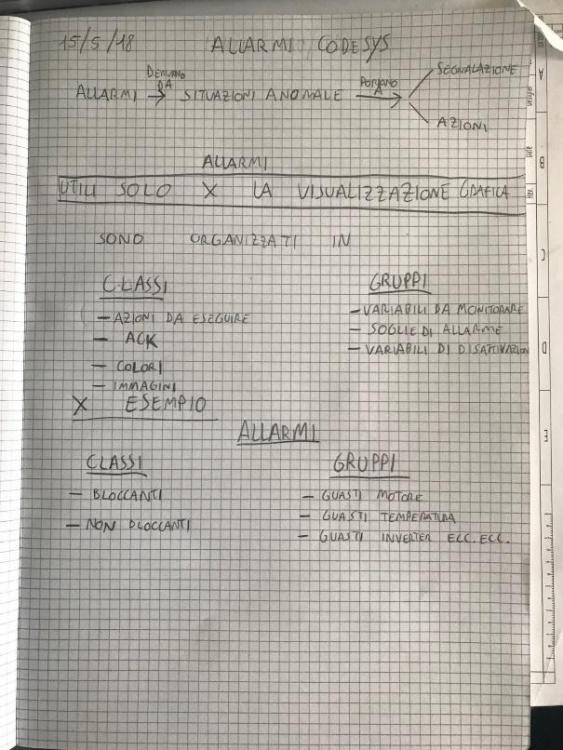 15/5/18 ALLARMI CODESYS
ALLARMI DERIVANO DA → SITUAZIONI ANOMALE PORTANO A → SEGNALAZIONE
AZIONI
ALLARMI
UTILI SOLO X LA VISUALIZZAZIONE GRAFICA
SONO ORGANIZZATI IN
CLASSI
- AZIONI DA ESEGUIRE
- ACK
- COLORI
- IMMAGINI
GRUPPI
- VARIABILI DA MONITORARE
- SOGLIE DI ALLARME
- VARIABILI DI DISATTIVAZION
X ESEMPIO
ALLARMI
CLASSI
- BLOCCANTI
- NON BLOCCANTI
GRUPPI
- GUASTI MOTORE
- GUASTI TEMPERATURA
- GUASTI INVERTER ECC. ECC.
A
B
C
D
E